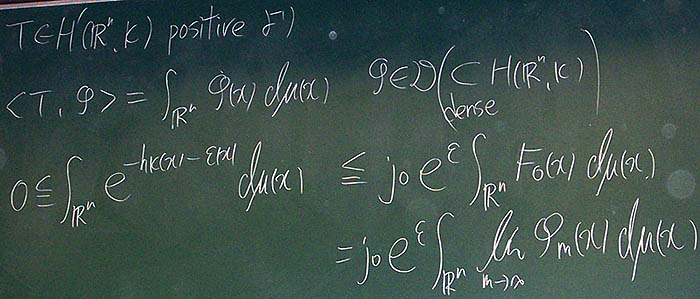 T∈H'(ℝⁿ, K) positive
<T, φ> = ∫_ℝⁿ φ(x) dμ(x) φ∈𝒟(⊂ H(ℝⁿ, K) dense)
0 ≦ ∫_ℝⁿ e^{-h_K(x) - ε|x|} dμ(x) ≦ j₀ e^ε ∫_ℝⁿ F₀(x) dμ(x)
= j₀ e^ε ∫_ℝⁿ lim_{m→∞} φ_m(x) dμ(x)